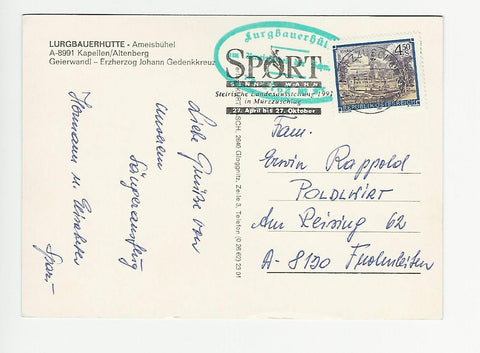 LURGBAUERHÜTTE - Ameisbühel
A-8991 Kapellen/Altenberg
Geierwandl - Erzherzog Johann Gedenkkreuz
Lurgbauerhütte
SPORT
SINN & WAHN
Steirische Landesausstellung 1991
in Mürzzuschlag
27. April bis 27. Oktober
4.50
REPUBLIK ÖSTERREICH
Liebe Grüße von
unserem
Sängerausflug
Hermann u.
2640 Gloggnitz, Zeile 3, Telefon (0 26 62) 23 01
Fam.
Erwin Rappold
POLDLWIRT
Am Reising 62
A-8130 Frohnleiten